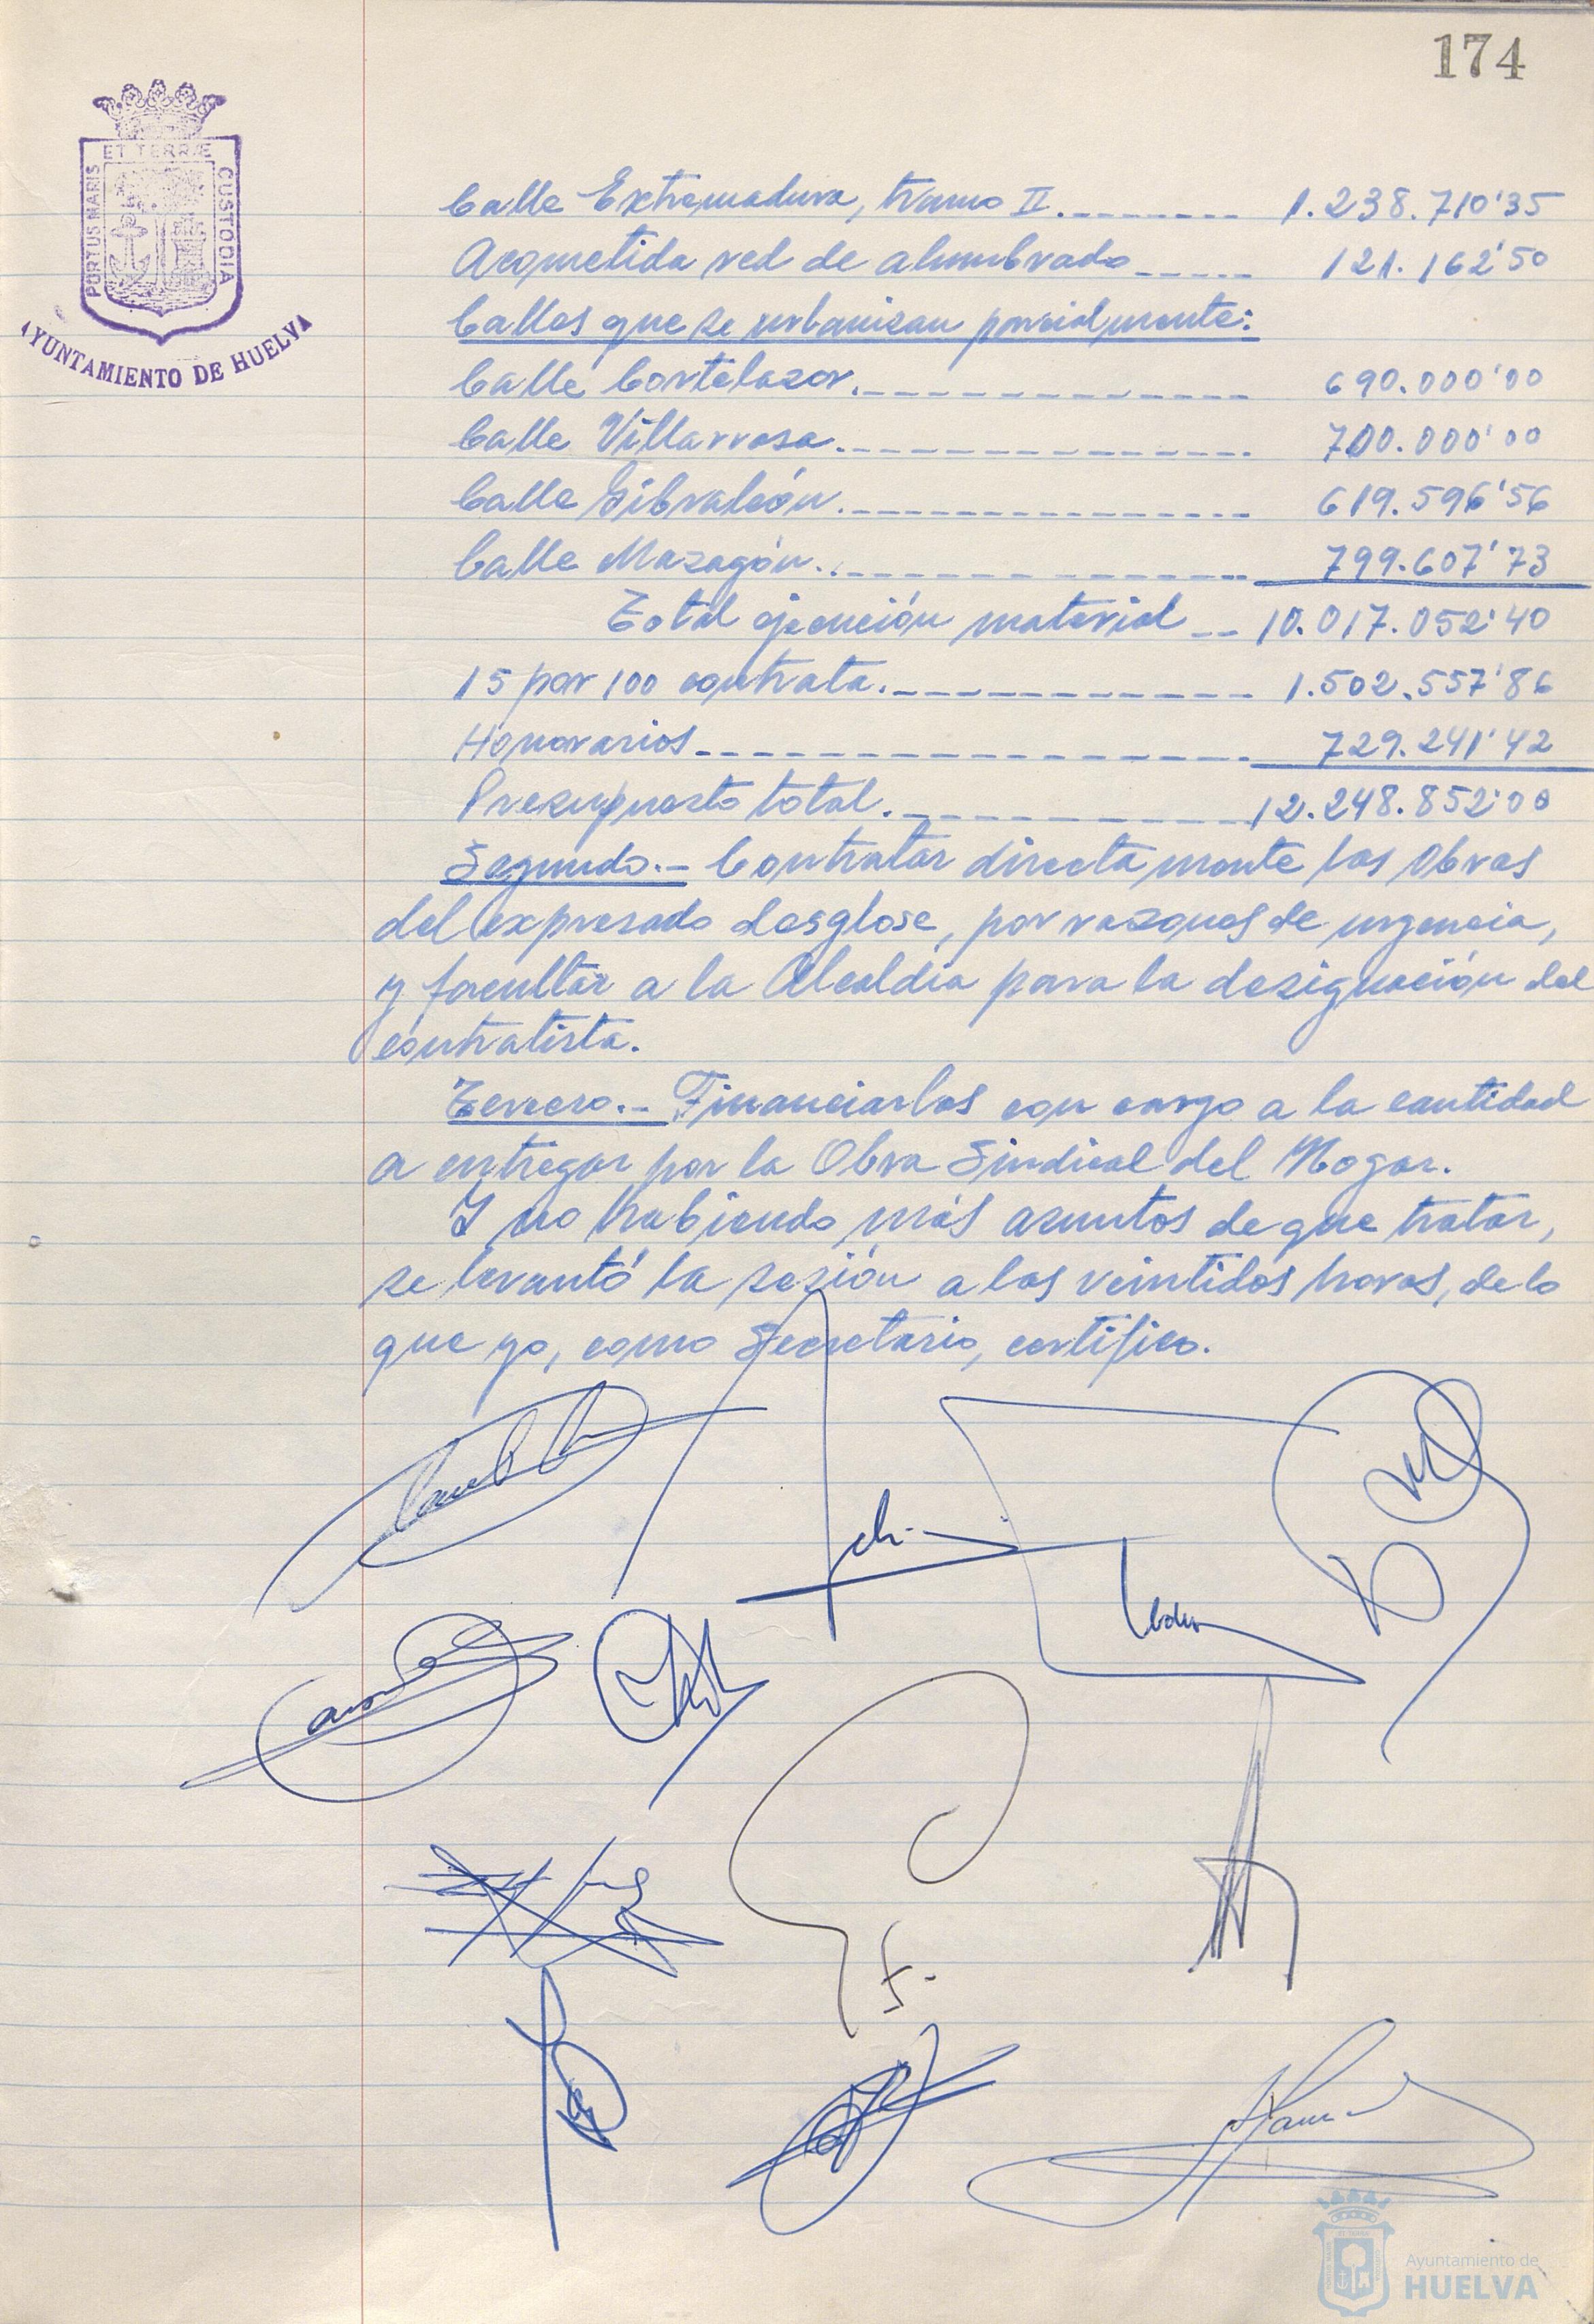 174
ET TERRÆ
PORTUS MARIS
CUSTODIA
AYUNTAMIENTO DE HUELVA
Calle Extremadura, tramo II. -------- 1.238.710'35
Acometida red de alumbrado ----- 121.162'50
Calles que se urbanizan parcialmente:
Calle Cortelazor. ------------- 690.000'00
Calle Villarrasa. -------------- 700.000'00
Calle Gibraleón. --------------- 619.596'56
Calle Mazagón. --------------- 799.607'73
Total ejecución material -- 10.017.052'40
15 por 100 contrata. ------------ 1.502.557'86
Honorarios ------------------ 729.241'42
Presupuesto total. ------------ 12.248.852'00
Segundo.- Contratar directamente las obras
del expresado desglose, por razones de urgencia,
y facultar a la Alcaldía para la designación del
contratista.
Tercero.- Financiarlas con cargo a la cantidad
a entregar por la Obra Sindical del Hogar.
Y no habiendo más asuntos de que tratar,
se levantó la sesión a las veintidós horas, de lo
que yo, como Secretario, certifico.
Ayuntamiento de
HUELVA